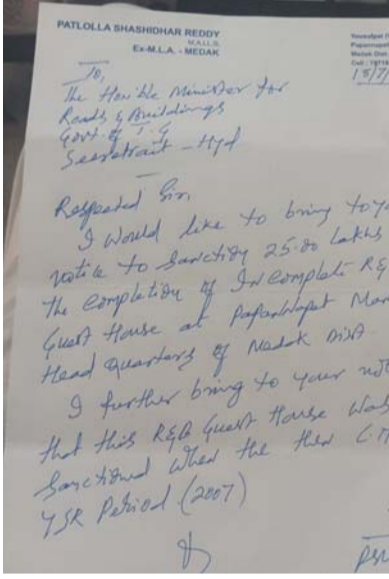 PATLOLLA SHASHIDHAR REDDY
M.A.LL.B.
Ex-M.L.A. - MEDAK
Medak Dist
To,
The Hon'ble Minister for
Roads & Buildings
Govt. of T.G
Secretrait - Hyd
Respected Sir,
I would like to bring to
notice to Sanction 25.00 Lakhs
the completion of Incomplete R&
Guest House at Papannapet
Head Quarters of Medak Dist.
I further bring to your
that this R&B Guest House was
Sanctioned when the then C.
YSR Period (2007)